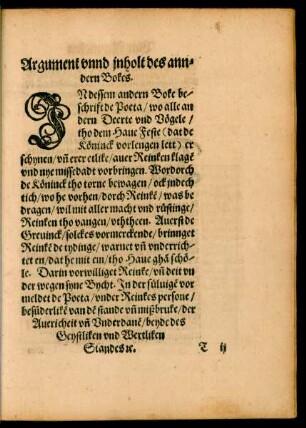 Argument vnnd jnholt des ann-
dern Bokes.
IN dessem andern Boke be-
schrift de Poeta / wo alle an
dern Deerte vnd Vögele /
tho dem Haue Feste (dat de
Köninck vorlengen lett) er
schynen / vñ erer etlike / auer Reinken klagē
vnd nye missedadt vorbringen. Wordorch
de Köninck tho torne bewagen / ock jndech
tich / wo he vorhen / dorch Reinkē / was be
dragen / wil mit aller macht vnd rüstinge /
Reinken tho vangen / vththeen. Auerst de
Greuinck / solckes vormerckende / brinnget
Reinkē de tydinge / warnet vñ vnderrich-
tet en / dat he mit em / tho Haue ghā schö-
le. Darin vorwilliget Reinke / vñ deit vn
der wegen syne Bycht. In der süluigē vor
meldet de Poeta / vnder Reinkes persone /
besünderlikē van dē stande vñ mißbruke / der
Auericheit vñ Vnderdanē / beyde des
Geystliken vnd Wertliken
Standes ꝛc.
T ij